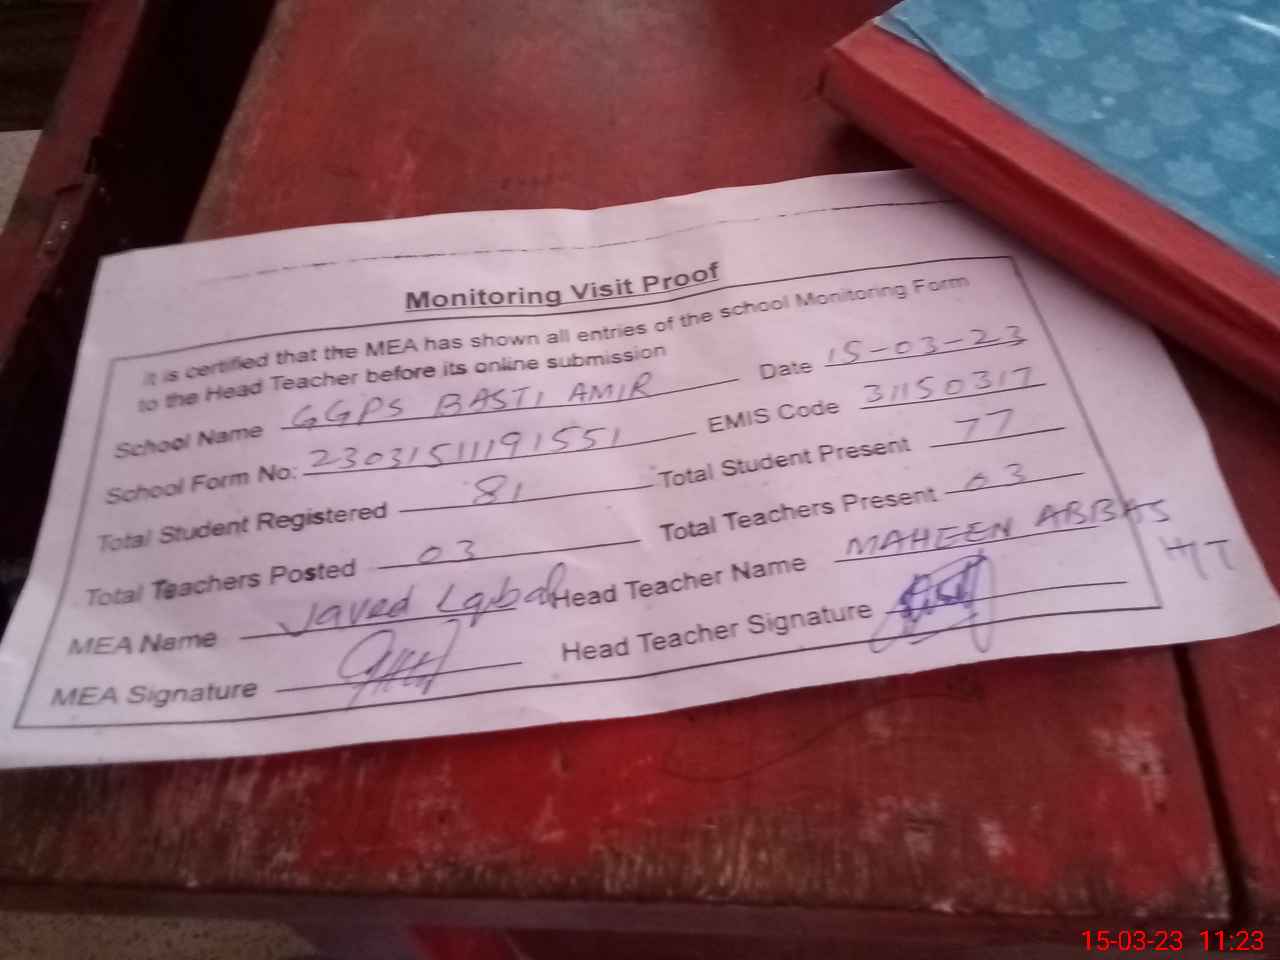 Monitoring Visit Proof
It is certified that the MEA has shown all entries of the school Monitoring Form
to the Head Teacher before its online submission
School Name GGPS BASTI AMIR Date 15-03-23
School Form No: 23031511191551 EMIS Code 31150317
Total Student Registered 81 Total Student Present 77
Total Teachers Posted 03 Total Teachers Present 03
MEA Name Javed Iqbal Head Teacher Name MAHEEN ABBAS
MEA Signature Head Teacher Signature
15-03-23 11:23